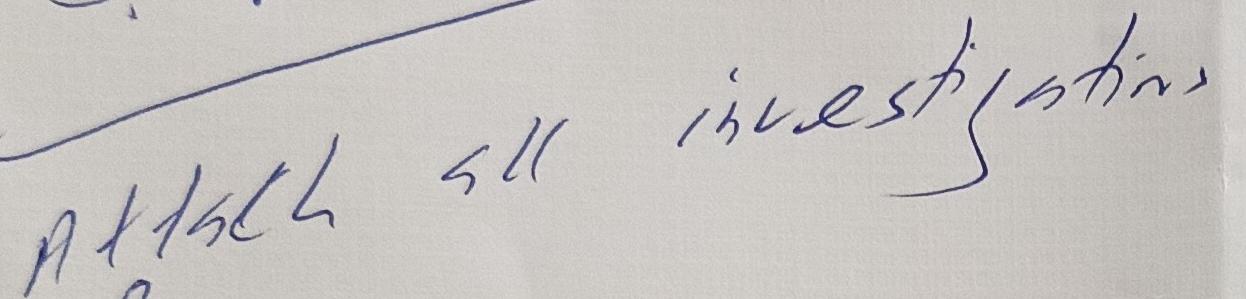 Attach all investigations